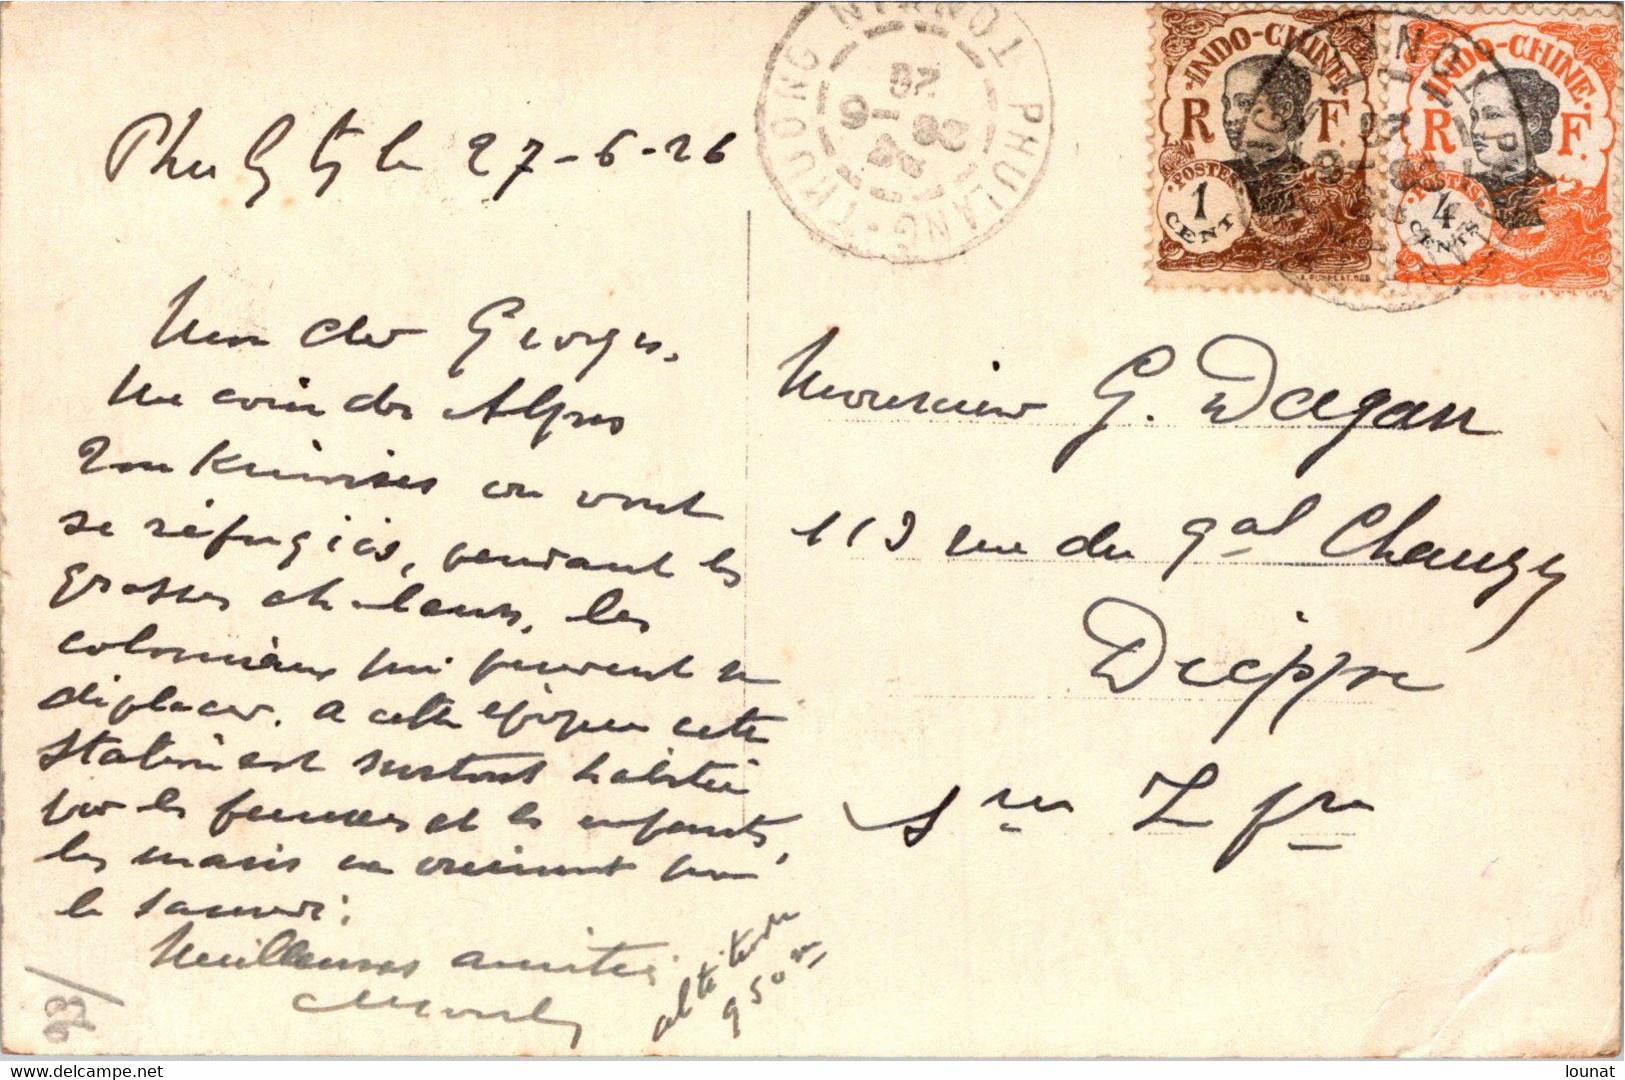 Phu Lg Tg le 27-6-26
Mon cher Georges,
Un coin des Alpes
Tonkinoises où vont
se réfugier, pendant les
grosses chaleurs, les
coloniaux qui peuvent se
déplacer. A cette époque cette
station est surtout habitée
par les femmes et les enfants,
les maris ne viennent que
le samedi.
Meilleures amitiés
altitude
950 m
PHULANG-THUONG TONKIN
INDO-CHINE
R F
POSTES
1
CENT
INDO-CHINE
R F
POSTES
4
CENTS
Monsieur G. Dagan
113 rue du gal Chanzy
Dieppe
Sne Ifre
delcampe.net
lounat